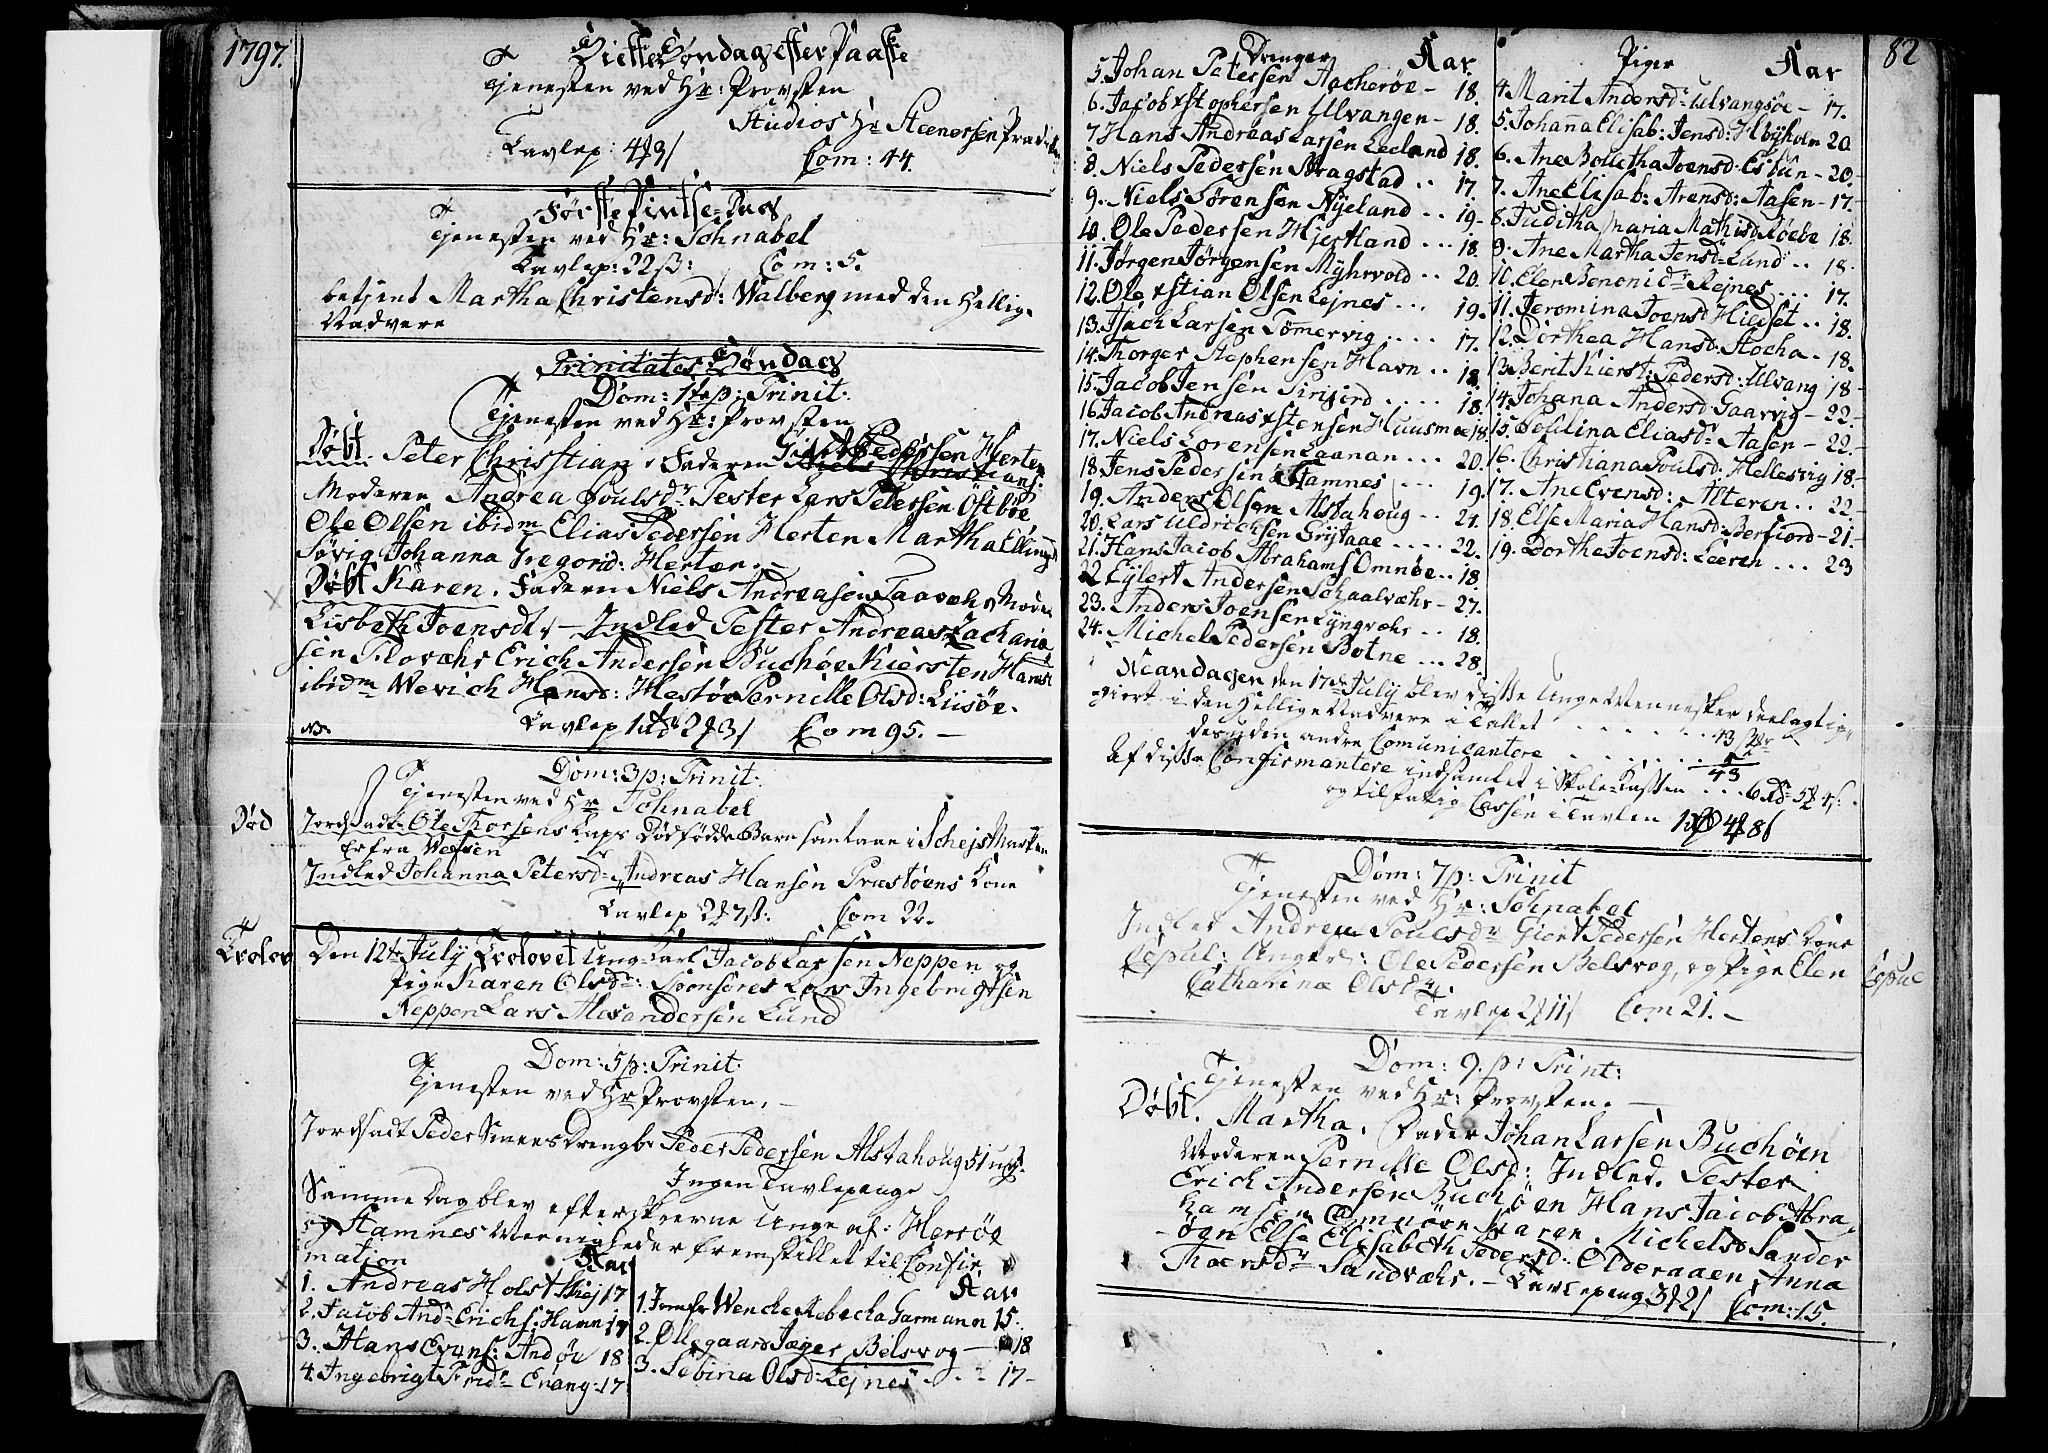 1797.
Siette Søndag effter Paaske
Tjenesten ved Hr: Provsten
Studios Hr Steenersen
Tavlep: 4 ʒ 3 s Com: 44.
Første Pintse-Dag
Tjenesten ved Hr: Schnabel
Tavlep: 22 ß: Com: 5.
betjent Martha Christensd: Walberg med den Hellig-
Nadvere
Trinitates Søndag
Dom: 1ste p: Trinit:
Tjenesten ved Hr: Provsten
Døbt Peter Christian, Faderen Giert Pedersen Herten
Moderen Andrea Poulsdr Tester Lars Petersen Østbøe
Ole Olsen ibidm Elias Pedersen Herten Martha
Søvig Johanna Gregorid: Herten.
Døbt Karen. Faderen Niels Andreasen Moder
Lisbeth Joensdr. – Indled Tester Andreas Zacharia
sen Erich Andersen Buchøe Kiersten Hansd
ibidm Wevich Hansd: Hestøe Pernille Olsd: Liisøe.
Tavlep 1 2 ʒ 3 s Com 95. –
Dom: 3 p: Trinit:
Tjenesten ved Hr Schnabel
Død Jordfæstet Ole Thorsens Dødfødde Barn
Er fra Wefsen
Indled Johanna Petersd: Andreas Hansen Præstøens Kone
Tavlep 2 ʒ 7 ß: Com 22.
Trolov Den 12te July Trolovet Ung-Karl Jacob Larsen Neppen og
Pige Karen Olsdr: Sponsores Lars Ingebrigtsen
Neppen Lars Alexandersen Lund
Dom: 5 p: Trinit:
Tjenesten ved Hr Provsten. –
Jordfæstet Peder Smeds Drengb: Peder Pedersen Alstahoug 51 ug:
Ingen Tavlepenge
Samme Dag blev efterskrevne Unge af: Herøe
og Stamnes Menigheder fremstillet til Confir
mation
Aar
1. Andreas Holst 17
2. Jacob Andr Erichs: Hamn 17
3. Hans Evens: Andøe 18
4. Ingebrigt Fridr Enang: 17
Aar
1. Jomfr Wenche Rebecha Garmann 15.
2. Øllegaard Jæger Belsvog – 18
3. Sebina Olsd: Leines . . . 17 –
82
Drenger Aar
5. Johan Petersen Aacherøe – 18.
6. Jacob xstophersen Ulvangen – 18.
7 Hans Andreas Larsen Leeland 18.
8. Niels Pedersen Skragstad . . 17.
9. Niels Sørensen Nyeland . . 19 –
10. Ole Pedersen Hjertland . . . 18.
11. Jørgen Jørgensen Myhrvold . . 20.
12. Ole xstian Olsen Lejnes . . . 19.
13. Isach Larsen Tømervig . . . . 17.
14. Thorger Stephensen Havn . . 18.
15. Jacob Jensen . . . . 18.
16. Jacob Andreas xstensen Huusmoe 18.
17. Niels Lorensen Laanan . . . 20.
18. Jens Pedersen Stamnes . . . 19.
19. Anders Olsen Alstahoug . . 21.
20. Lars Uldrichsen Grytaae . . . . 22.
21. Hans Jacob Abrahams Omnøe . . 18.
22 Eylert Andersen Schaalvæhr – 27.
23. Anders Joensen Lyngvæhr . . 18.
24. Michel Pedersen Botne . . . 28.
Piger Aar
4. Marit Andersd: Ulvangsøe – 17.
5. Johaña Elisab: Jensd: Høyholm 20
6. Ane Bolletha Joensd: Esbun – 20 –
7. Ane Elisab: Arensd: Aasen – 17 –
8. Juditha Maria Mathisd Røebe 18.
9. Ane Martha Jensd: Lund . . 18.
10. Elen Benonidr Rejnes . . . 17.
11. Jeromina Joensd Hildset . . 18.
12. Dorthea Hansd: Stocha . 18.
13. Berit Kierst: Pedersd: Ulvang 18 –
14. Johana Andersd Gaarvig – 22. –
15. Poulina Eliasdr Aasen – 22. –
16. Christiana Poulsd: Hellesvig 18 –
17. Ane Evensd: Alteren . . 22 –
18. Else Maria Hansd: Berfiord – 21 –
19. Dorthe Joensd: Leeren . . . 23
Mandagen den 17de July blev disse Unge Mennesker deelagtig-
giort i den Hellige Nadvere i Tallet . . . . . . 43
desuden andre Comunicantere . . . . . .
43
Af disse Confirmantere indsamlet i Skole-Cassen . . . 6 rd: 5 ʒ 4 s:
og til fattig Cassen i Tavlen 1 rd 4 ʒ 8 s
Dom: 7 p: Trinit
Tjenesten ved Hr: Schnabel
Indled Andrea Poulsdr Giert Pedersen Hertens Kone
Copul: Ungk: Ole Pedersen Belsvog, og Pige Elen
Catharina Olsdr Copul
Tavlep 2 ʒ 11 s Com 21. –
Dom: 9. p: Trint:
Tjenesten ved Hr: Provsten. –
Døbt. Martha. Fader Johan Larsen Buchøen
Moderen Pernille Olsd: Indled. Tester
Erich Andersen Buchøen Hans Jacob Abra-
hamsen Omnøen Karen Michelsd Sander
øgn Else Elisabeth Pedersd: Olderaaen, Anna
Thoersdr Sandvæhr. – Tavlepeng 3 ʒ 2 s Com: 15.